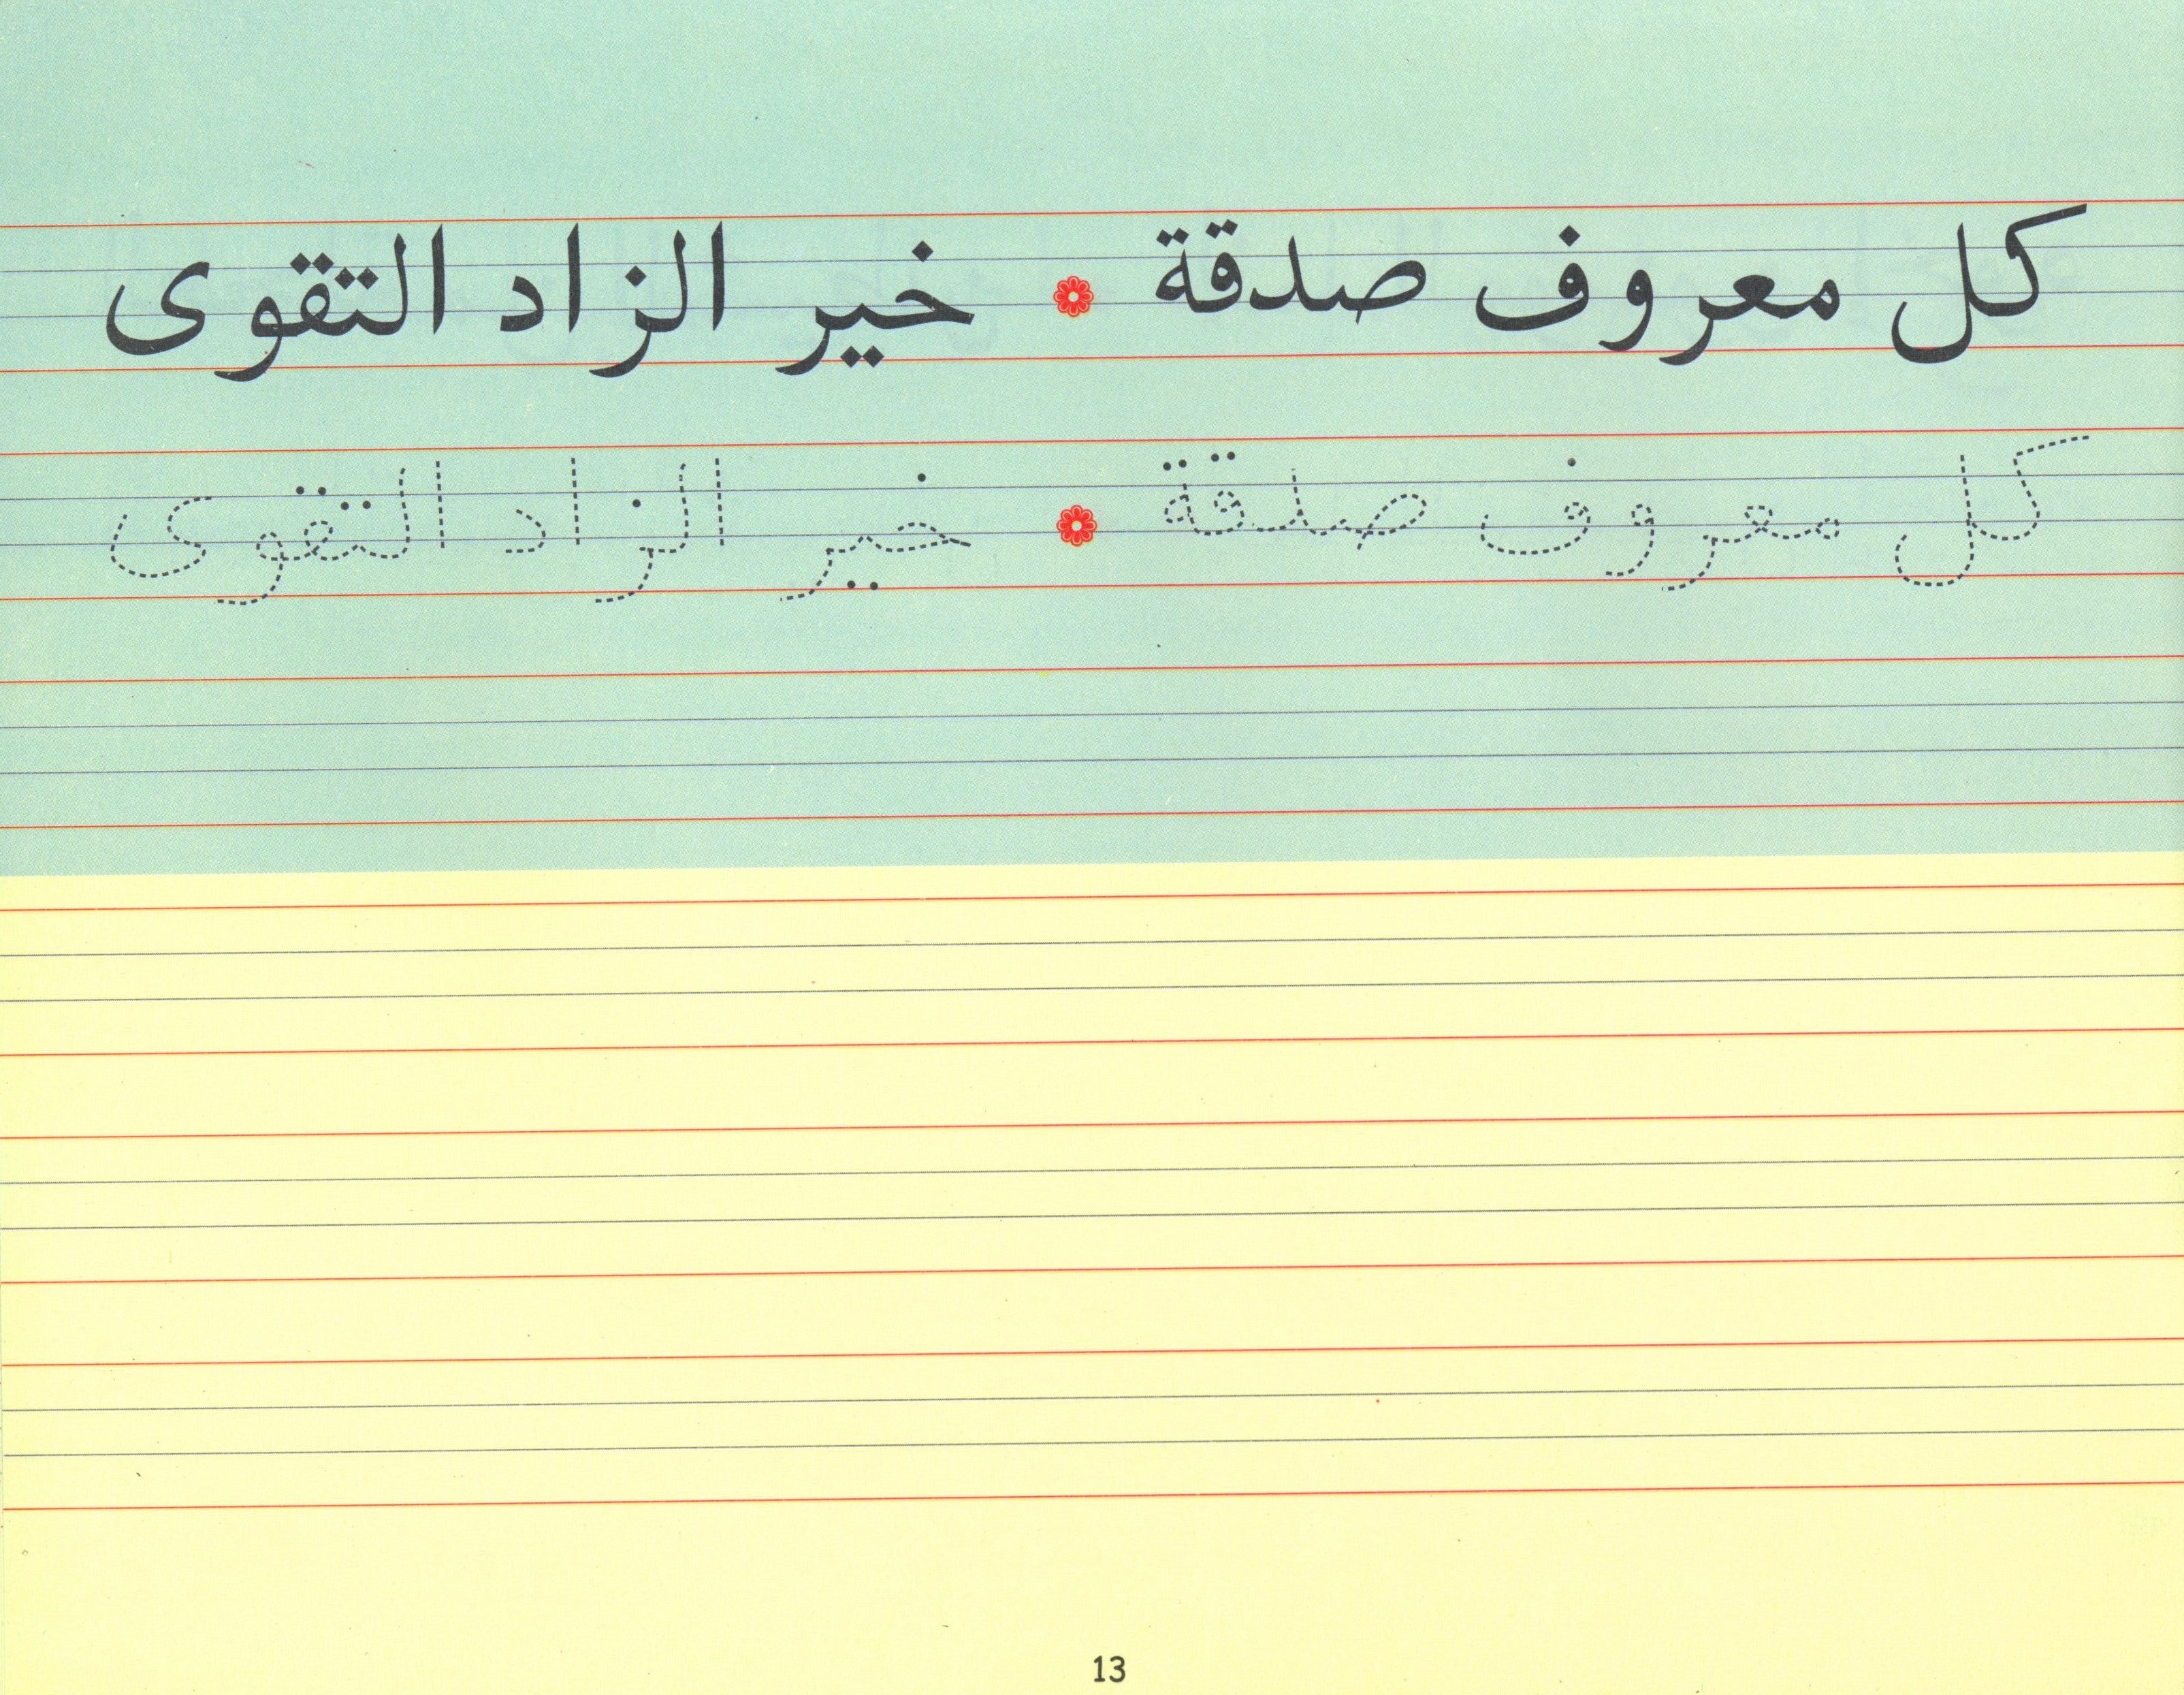 كل معروف صدقة خير الزاد التقوى
كل معروف صدقة خير الزاد التقوى
13